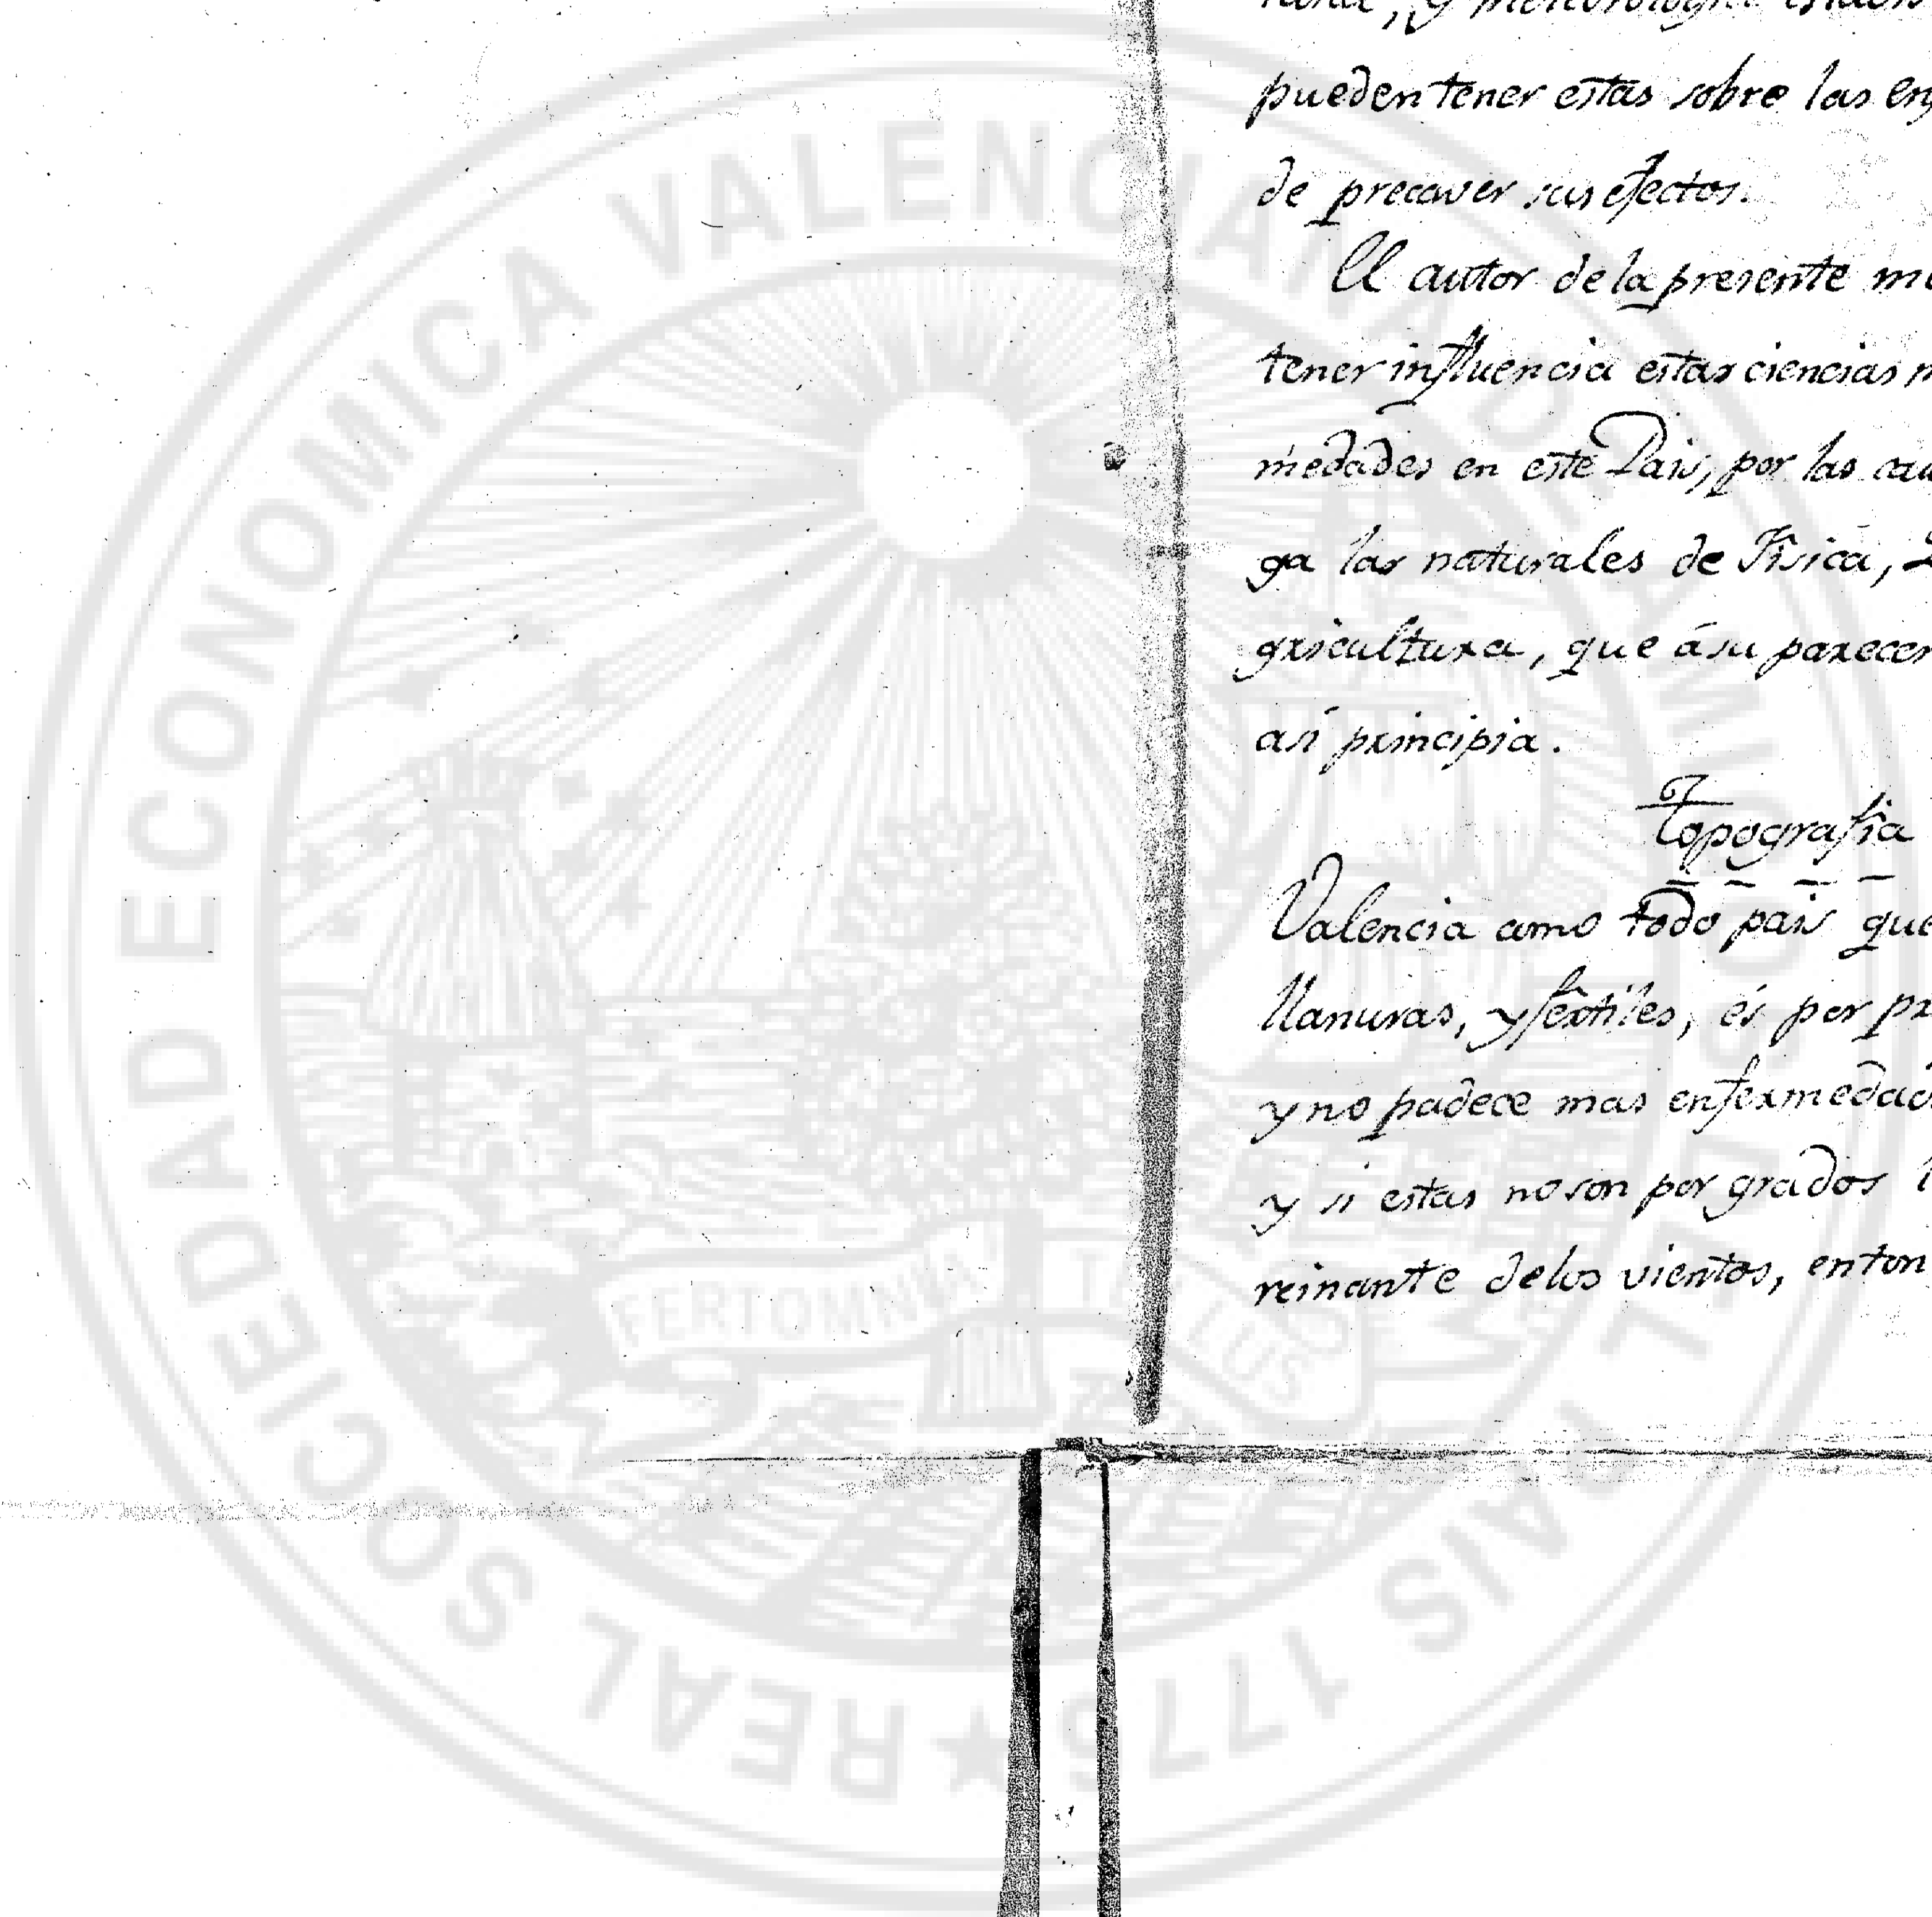 pueden tener estas sobre las en
de precaver sus efectos.
El autor de la presente m
tener influencia estas ciencias
medades en este Pais, por las cau
ga las naturales de Fisica,
gricultura, que á su parecer
asi principia.
Topografia
Valencia como todo pais que
llanuras, y fértiles, és por pr
y no padece mas enfermedad
y si estas no son por grados
reinante de los vientos, enton
REAL SOCIEDAD ECONOMICA VALENCIANA
PAIS 1776